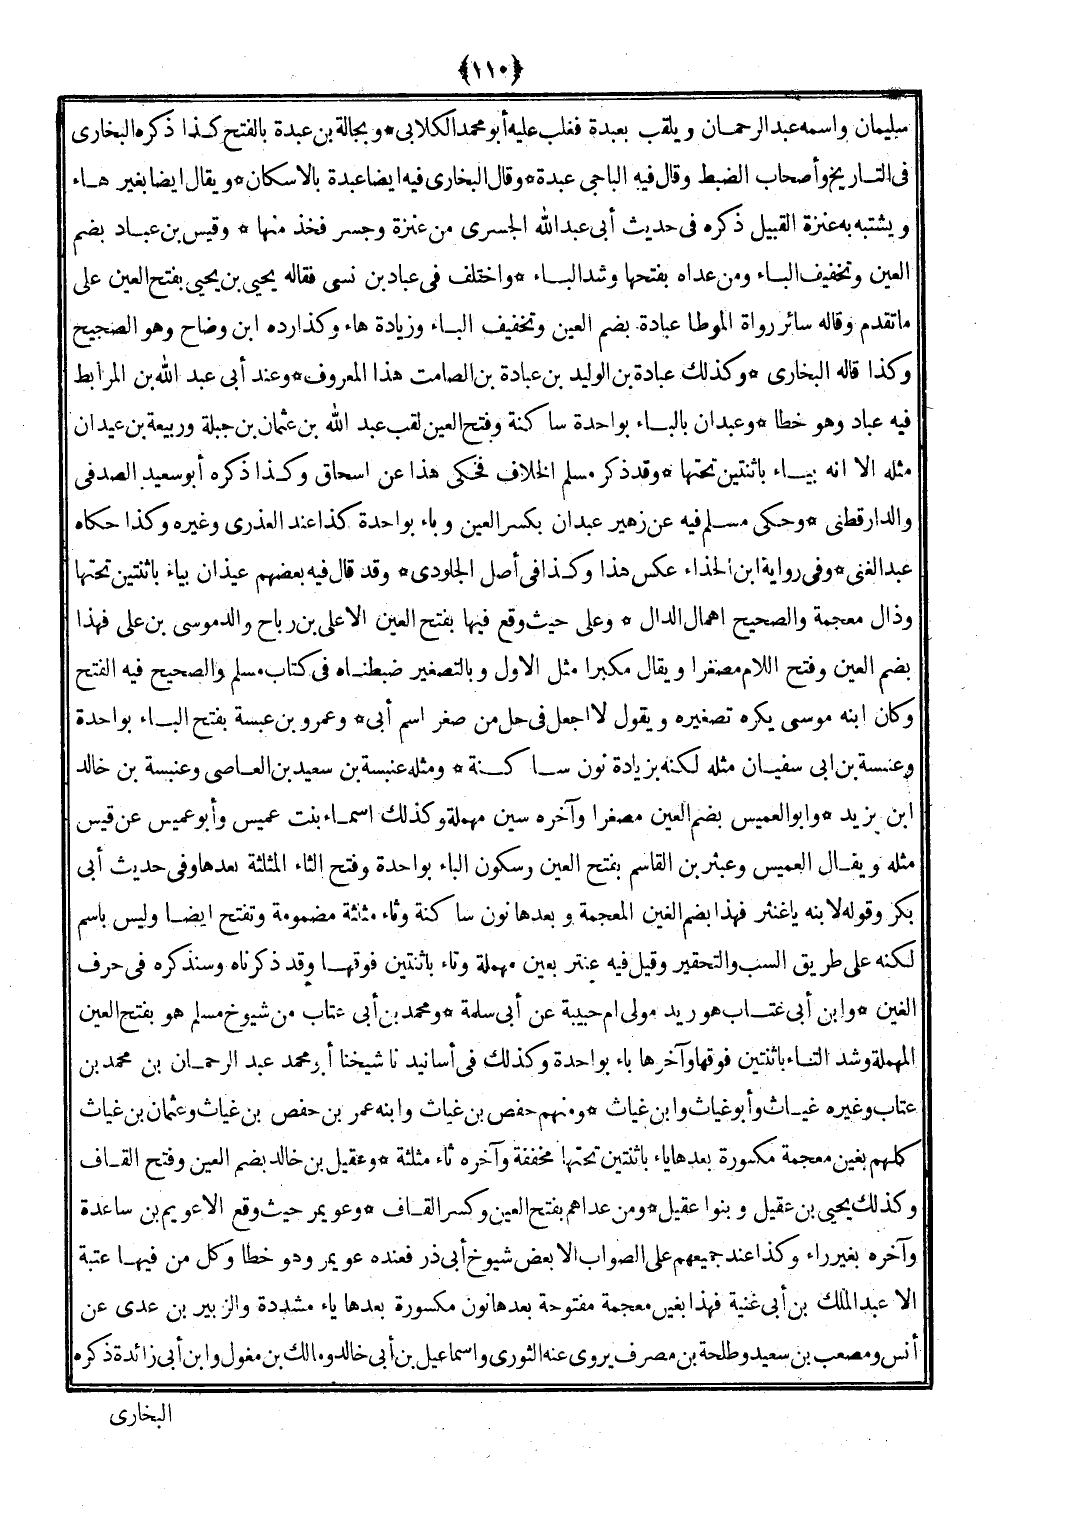 ﴿١١٠﴾
سليمان واسمه عبد الرحمان ويلقب بعبدة فغلب عليه أبو محمد الكلابي * وبجالة بن عبدة بالفتح كذا ذكره البخارى
فى التاريخ وأصحاب الضبط وقال فيه الباجى عبدة * وقال البخارى فيه ايضا عبدة بالاسكان * ويقال ايضا بغير هاء
ويشتبه به عنزة القبيل ذكره فى حديث أبى عبد الله الجسرى من عنزة وجسر فخذ منها * وقيس بن عباد بضم
العين وتخفيف الباء ومن عداه بفتحها وشد الباء * واختلف فى عباد بن نسى فقاله يحيى بن يحيى بفتح العين على
ما تقدم وقاله سائر رواة الموطا عبادة بضم العين وتخفيف الباء وزيادة هاء وكذا رده ابن وضاح وهو الصحيح
وكذا قاله البخارى * وكذلك عبادة بن الوليد بن عبادة بن الصامت هذا المعروف * وعند أبى عبد الله بن المرابط
فيه عباد وهو خطا * وعبدان بالباء بواحدة ساكنة وفتح العين لقب عبد الله بن عثمان بن جبلة وربيعة بن عيدان
مثله الا انه بياء باثنتين تحتها * وقد ذكر مسلم الخلاف فحكى هذا عن اسحاق وكذا ذكره أبو سعيد الصدفى
والدارقطنى * وحكى مسلم فيه عن زهير عبدان بكسر العين وباء بواحدة كذا عند العذرى وغيره وكذا حكاه
عبد الغنى * وفى رواية ابن الحذاء عكس هذا وكذا فى أصل الجلودى * وقد قال فيه بعضهم عيذان بياء باثنتين تحتها
وذال معجمة والصحيح اهمال الدال * وعلى حيث وقع فيها بفتح العين الا على بن رباح والد موسى بن على فهذا
بضم العين وفتح اللام مصغرا ويقال مكبرا مثل الاول وبالتصغير ضبطناه فى كتاب مسلم والصحيح فيه الفتح
وكان ابنه موسى يكره تصغيره ويقول لا اجعل فى حل من صغر اسم أبى * وعمرو بن عبسة بفتح الباء بواحدة
وعنبسة بن ابى سفيان مثله لكنه بزيادة نون ساكنة * ومثله عنبسة بن سعيد بن العاصى وعنبسة بن خالد
ابن يزيد * وابو العميس بضم العين مصغرا وآخره سين مهملة وكذلك اسماء بنت عميس وأبو عميس عن قيس
مثله ويقال العميس وعبثر بن القاسم بفتح العين وسكون الباء بواحدة وفتح الثاء المثلثة بعدها وفى حديث أبى
بكر وقوله لابنه ياغنثر فهذا بضم الغين المعجمة وبعدها نون ساكنة وثاء مثلثة مضمومة وتفتح ايضا وليس باسم
لكنه على طريق السب والتحقير وقيل فيه عنتر بعين مهملة وتاء باثنتين فوقها وقد ذكرناه وسنذكره فى حرف
الغين * وابن أبى عتاب هو زيد مولى ام حبيبة عن أبى سلمة * ومحمد بن أبى عتاب من شيوخ مسلم هو بفتح العين
المهملة وشد التاء باثنتين فوقها وآخرها باء بواحدة وكذلك فى أسانيد نا شيخنا أبو محمد عبد الرحمان بن محمد بن
عتاب وغيره غياث وأبو غياث وابن غياث * ومنهم حفص بن غياث وابنه عمر بن حفص بن غياث وعثمان بن غياث
كلهم بغين معجمة مكسورة بعدها ياء باثنتين تحتها مخففة وآخره ثاء مثلثة * وعقيل بن خالد بضم العين وفتح القاف
وكذلك يحيى بن عقيل وبنوا عقيل * ومن عداهم بفتح العين وكسر القاف * وعويمر حيث وقع الا عويم بن ساعدة
وآخره بغير راء وكذا عند جميعهم على الصواب الا بعض شيوخ أبى ذر فعنده عويمر وهو خطا وكل من فيها عتبة
الا عبد الملك بن أبى غنية فهذا بغين معجمة مفتوحة بعدها نون مكسورة بعدها ياء مشددة والزبير بن عدى عن
أنس ومصعب بن سعيد وطلحة بن مصرف يروى عنه الثورى واسماعيل بن أبى خالد ومالك بن مغول وابن أبى زائدة ذكره
البخارى